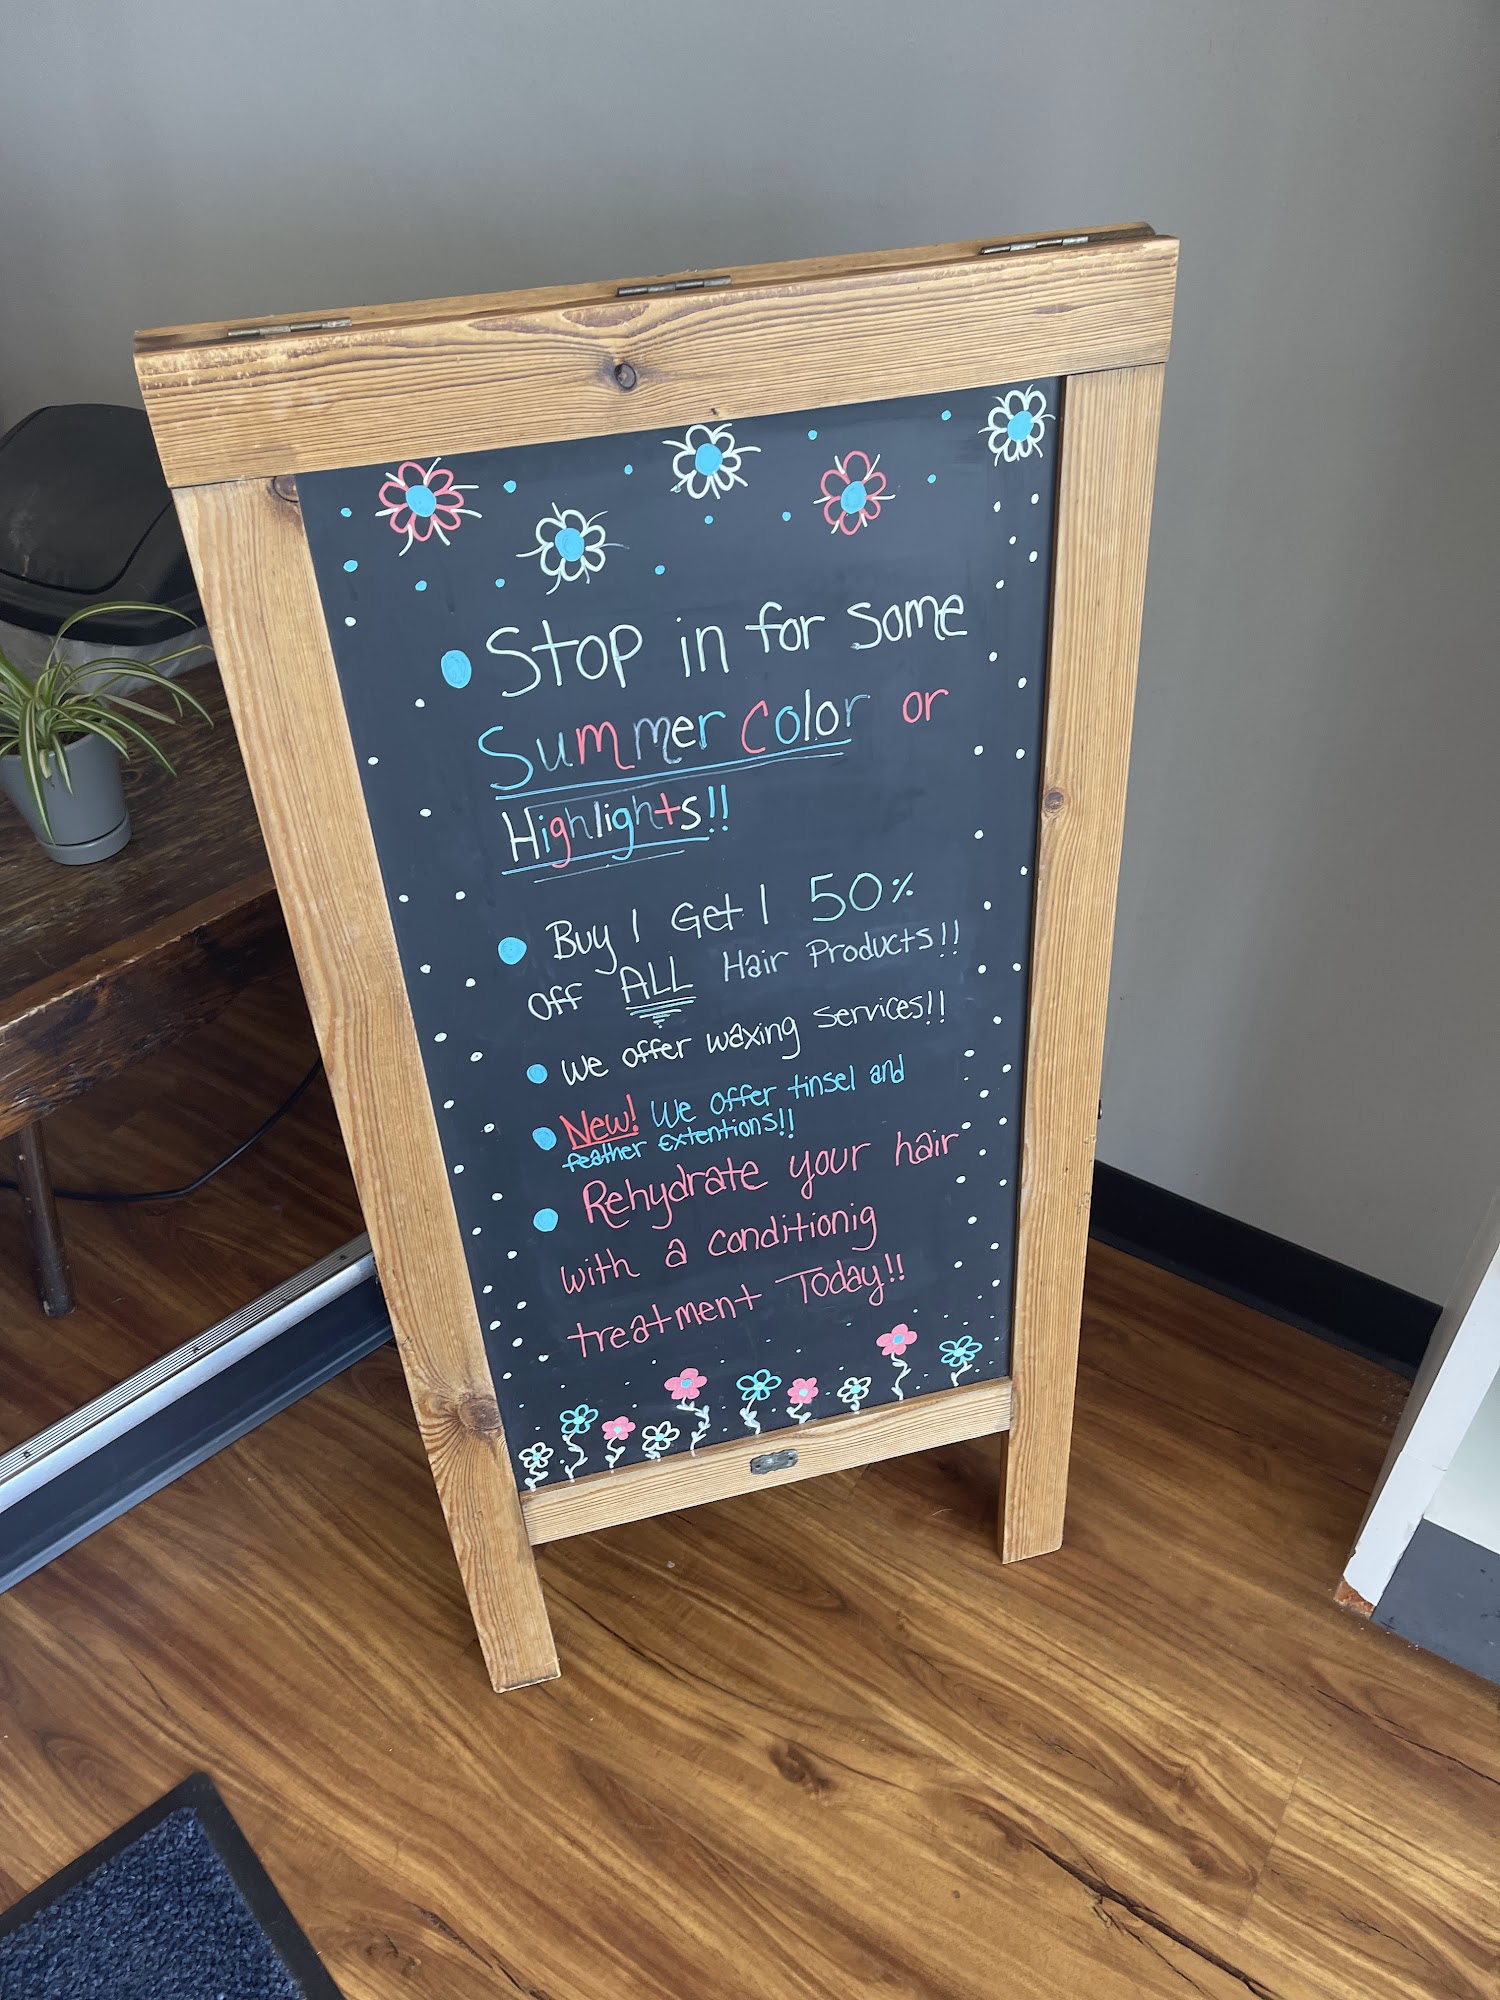 Stop in for some
Summer Color or
Highlights!!
Buy 1 Get 1 50%
off ALL Hair Products!!
We offer waxing services!!
New! We offer tinsel and
feather extentions!!
Rehydrate your hair
with a conditionig
treatment Today!!